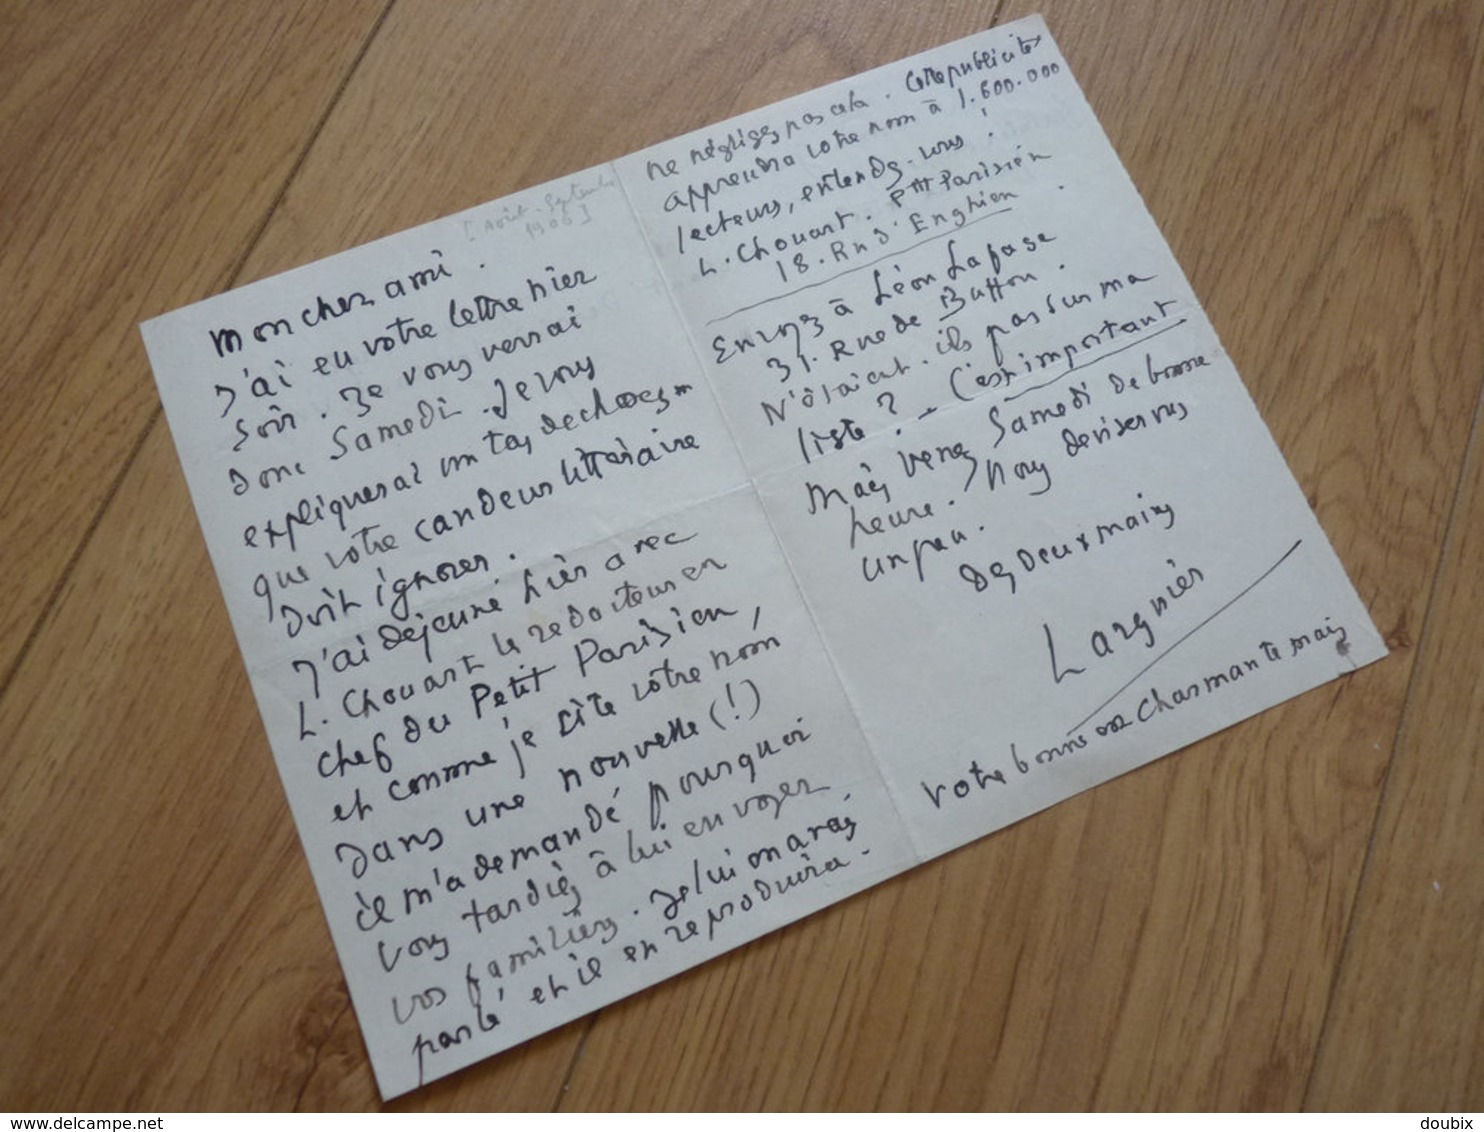 [Août-Septembre
1906]
mon cher ami.
J'ai eu votre lettre hier
soir. Je vous verrai
donc Samedi. Je vous
expliquerai un tas de choses
que votre candeur littéraire
doit ignorer.
J'ai déjeuné hier avec
L. Chouart le redacteur en
chef du Petit Parisien,
et comme je cite votre nom
dans une nouvelle (!)
il m'a demandé pourquoi
vous tardiez à lui envoyer
vos familiers. Je lui en avais
parlé, et il en reproduira.
ne négligez pas cela. Cette publicité
apprendra votre nom à 1.600.000
lecteurs, entendez-vous!
L. Chouart. Ptit Parisien
18. Rue d'Enghien
Envoyez à Léon Lafage
31. Rue de Buffon.
N'étaient-ils pas sur ma
liste? - C'est important
Mais venez Samedi de bonne
heure. Nous deviserons
un peu.
Des deux mains
Larguier
votre bonne charmante mais
delcampe.net
doubix